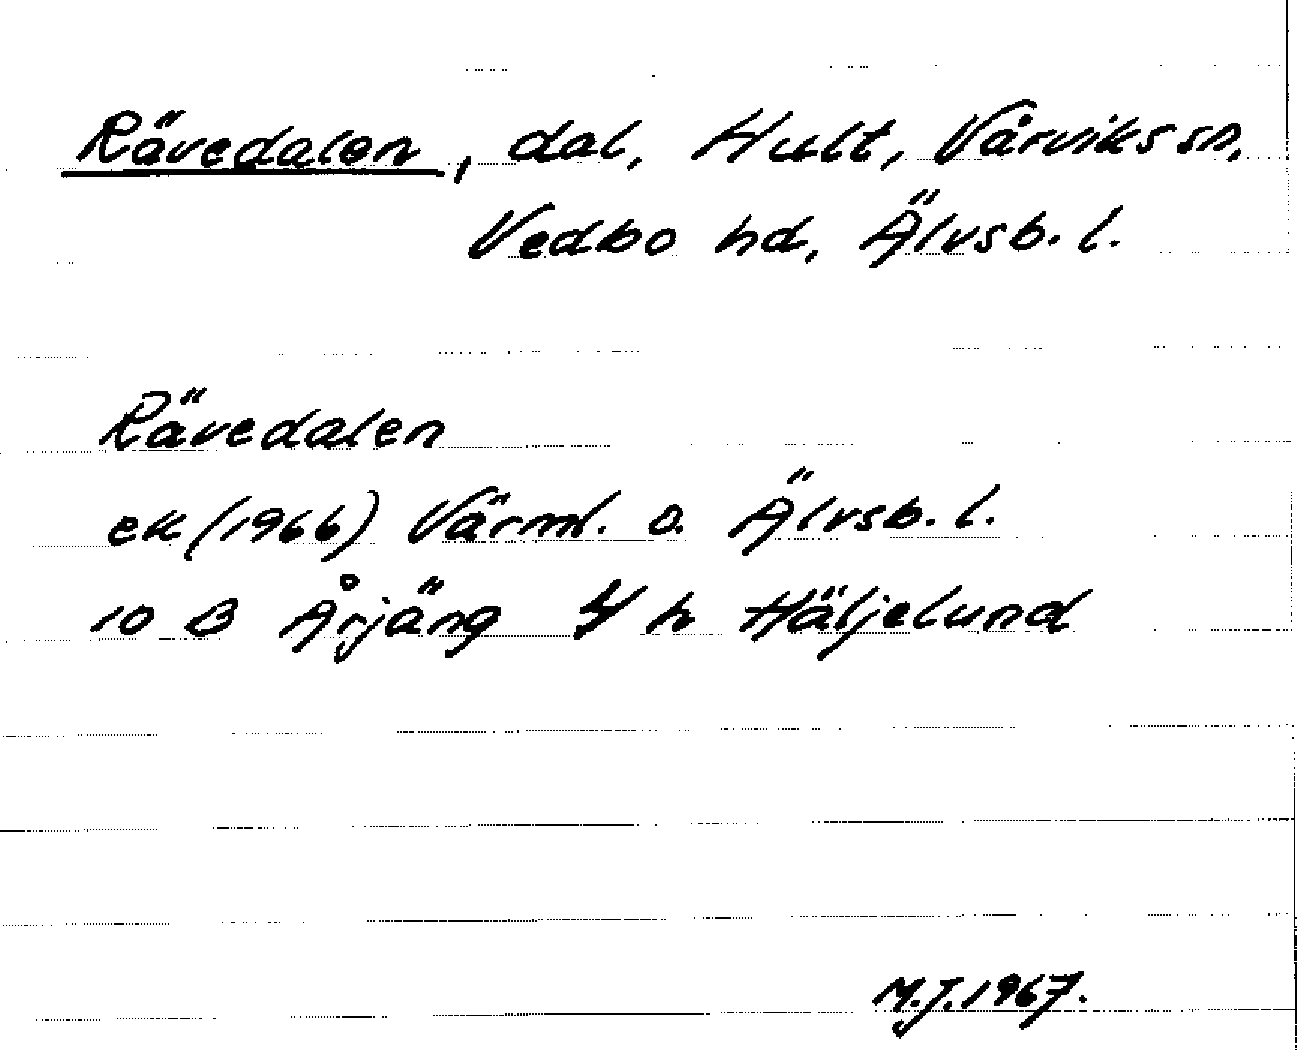 Rävedalen, dal, Hult, Vårviks sn,
Vedbo hd, Älvsb. l.
Rävedalen
ek (1966) Värml. o. Älvsb. l.
10 B Årjäng 4 h Häljelund
M.J. 1967.